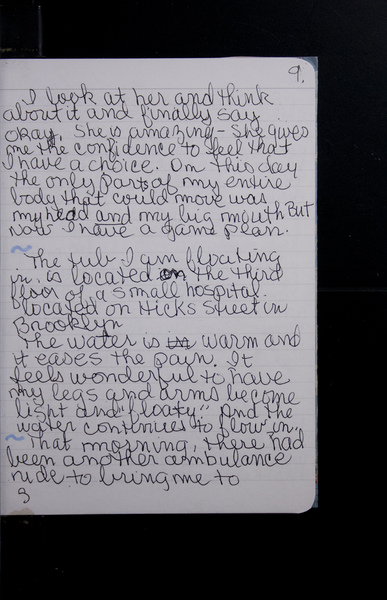 9.
I look at her and think
about it and finally say
okay. She is amazing - she gives
me the confidence to feel that
I have a choice. On this day
the only parts of my entire
body that could move was
my head and my big mouth But
Now I have a game plan.
~
The tub I am floating
in, is located on the third
floor of a small hospital
located on Hicks Street in
Brooklyn
The water is in warm and
it eases the pain. It
feels wonderful to have
my legs and arms become
light and "floaty". And the
water continues to flow in.
~ That morning, there had
been another ambulance
ride to bring me to
9